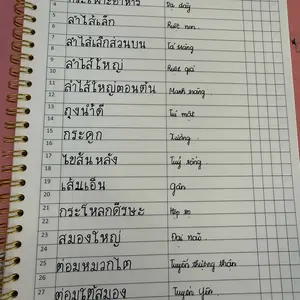 4 กระเพาะอาหาร Dạ dày
5 ลำไส้เล็ก Ruột non
6 ลำไส้เล็กส่วนบน Tá tràng
9 ลำไส้ใหญ่ Ruột già
ลำไส้ใหญ่ตอนต้น Manh tràng
13 ถุงน้ำดี Túi mật
15 กระดูก Xương
17 ไขสันหลัง Tuỷ sống
19 เส้นเอ็น Gân
21 กระโหลกศีรษะ Hộp sọ
23 สมองใหญ่ Đại não
25 ต่อมหมวกไต Tuyến thượng thận
27 ต่อมใต้สมอง Tuyến Yên